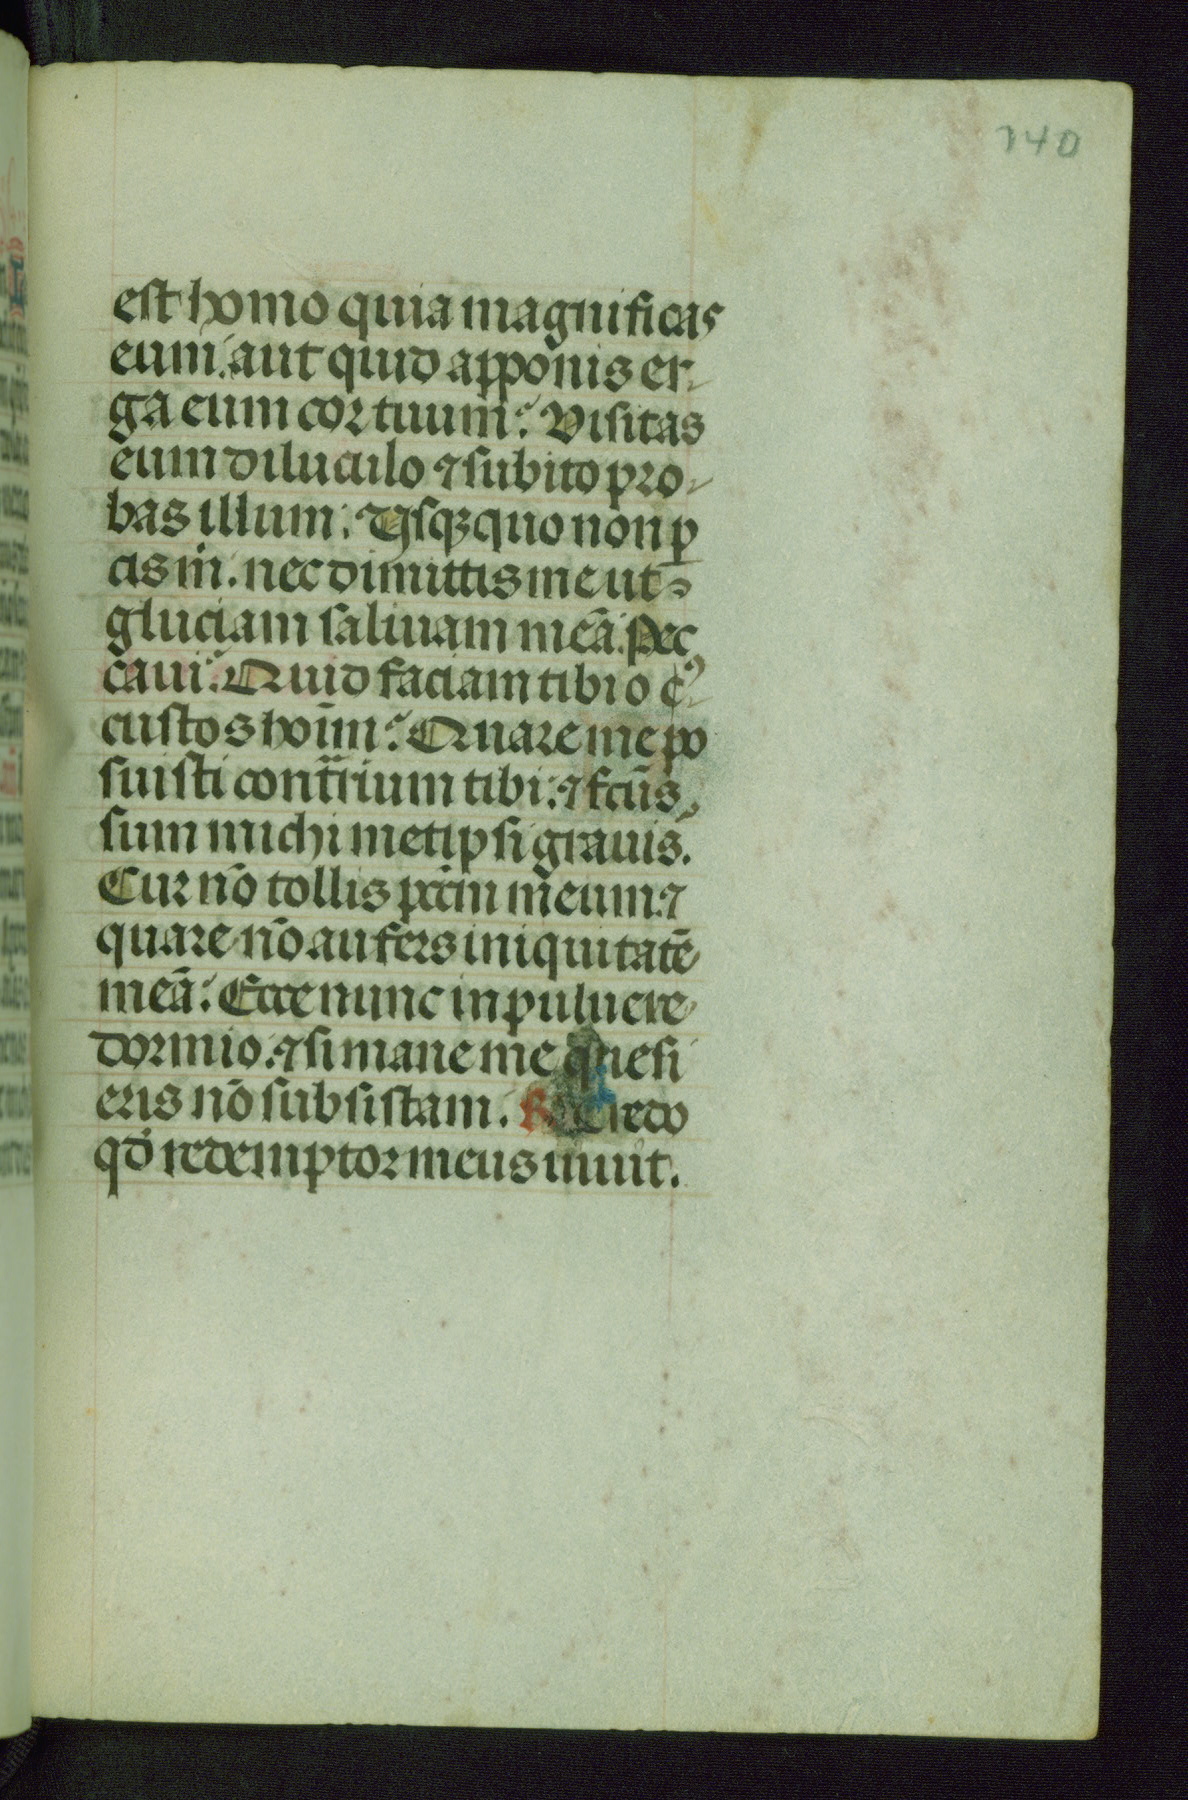 140
est homo quia magnificas
eum. aut quid apponis er-
ga eum cor tuum? Visitas
eum diluculo ⁊ subito pro-
bas illum. Usqꝫquo non ꝑ
cis m̄. nec dimittis me ut
gluciam saliuam meā. Pec
caui. Quid faciam tibi o
custos hoīm? Quare me po
suisti contrͣrium tibi. ⁊ fcūs
sum michi metipsi grauis.
Cur nō tollis pctm̄ meum. ⁊
quare nō aufers iniquitatē
meā? Ecce nunc in puluere
dormio. ⁊ si mane me quesi
eris nō subsistam. R. Credo
qđ redemptor meus uiuit.